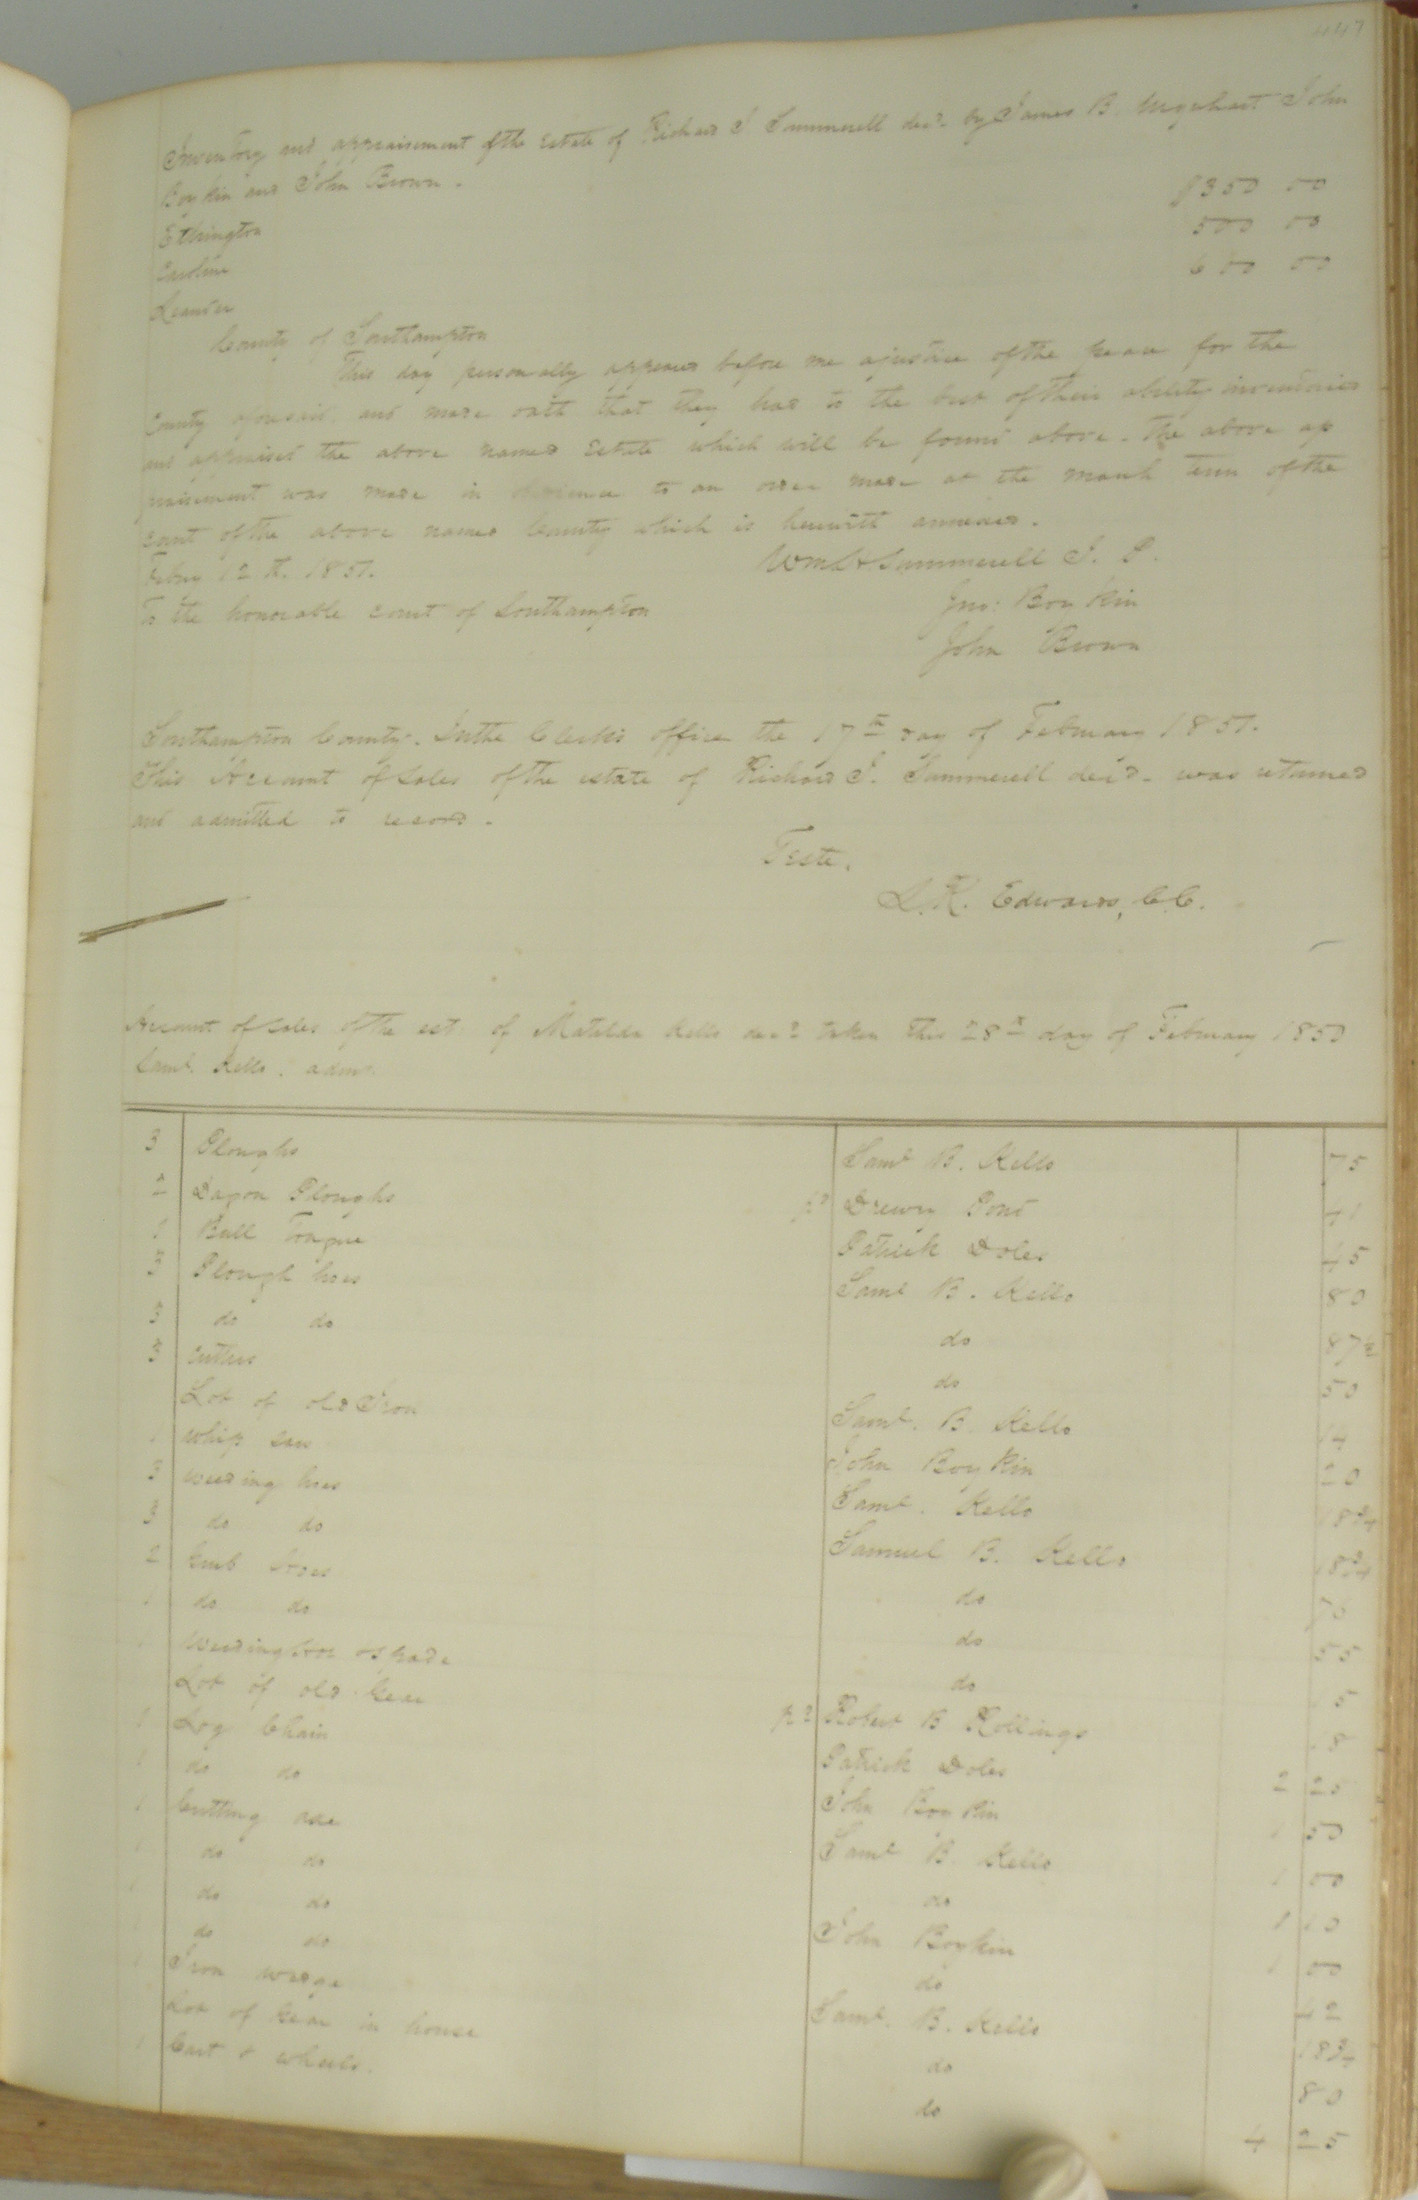 447
Inventory and appraisement of the Estate of Richard J. Summerell decd. by James B. Urquhart John
Boykin and John Brown.
Ethrington $350 00
Caroline 500 00
Leander 600 00
County of Southampton
This day personally appeared before me a justice of the peace for the
County aforesaid, and made oath that they had to the best of their ability inventoried
and appraised the above named Estate which will be found above. The above ap
praisement was made in obedience to an order made at the March term of the
court of the above named County which is herewith annexed.
Febuy 12th. 1851. Wm H Summerell J. P.
To the honorable court of Southampton Jno: Boykin
John Brown
Southampton County. In the Clerk's office the 17th day of February 1851.
This Account of Sales of the estate of Richard J. Summerell dec'd. was returned
and admitted to record.
Teste.
L. R. Edwards, C.C.
Account of Sales of the est of Matilda Kello decd taken this 28th day of February 1850
Saml. Kello. admr
3 Ploughs Saml B. Kello 75
2 Dagon Ploughs pd Drewry Pond 41
1 Bull Tongue Patrick Doles 45
3 Plough hoes Saml B. Kello 80
3 do do do 87½
3 Cutters do 50
Lot of old Iron Saml. B. Kello 14
1 Whip saw John Boykin 20
3 weeding hoes Saml. Kello 18¾
3 do do Samuel B. Kello 18¾
2 Grub Hoes do 76
1 do do do 55
1 Weeding hoe & spade do 15
Lot of old Gear pd Robert B Rollings 18
1 Log Chain Patrick Doles 2 25
1 do do John Boykin 1 50
1 Cutting axe Saml B. Kello 1 00
1 do do do 1 10
1 do do John Boykin 1 00
do do do 42
1 Iron wedge Saml. B. Kello 18¾
Lot of Gear in house do 80
1 Cart & wheels. do 4 25